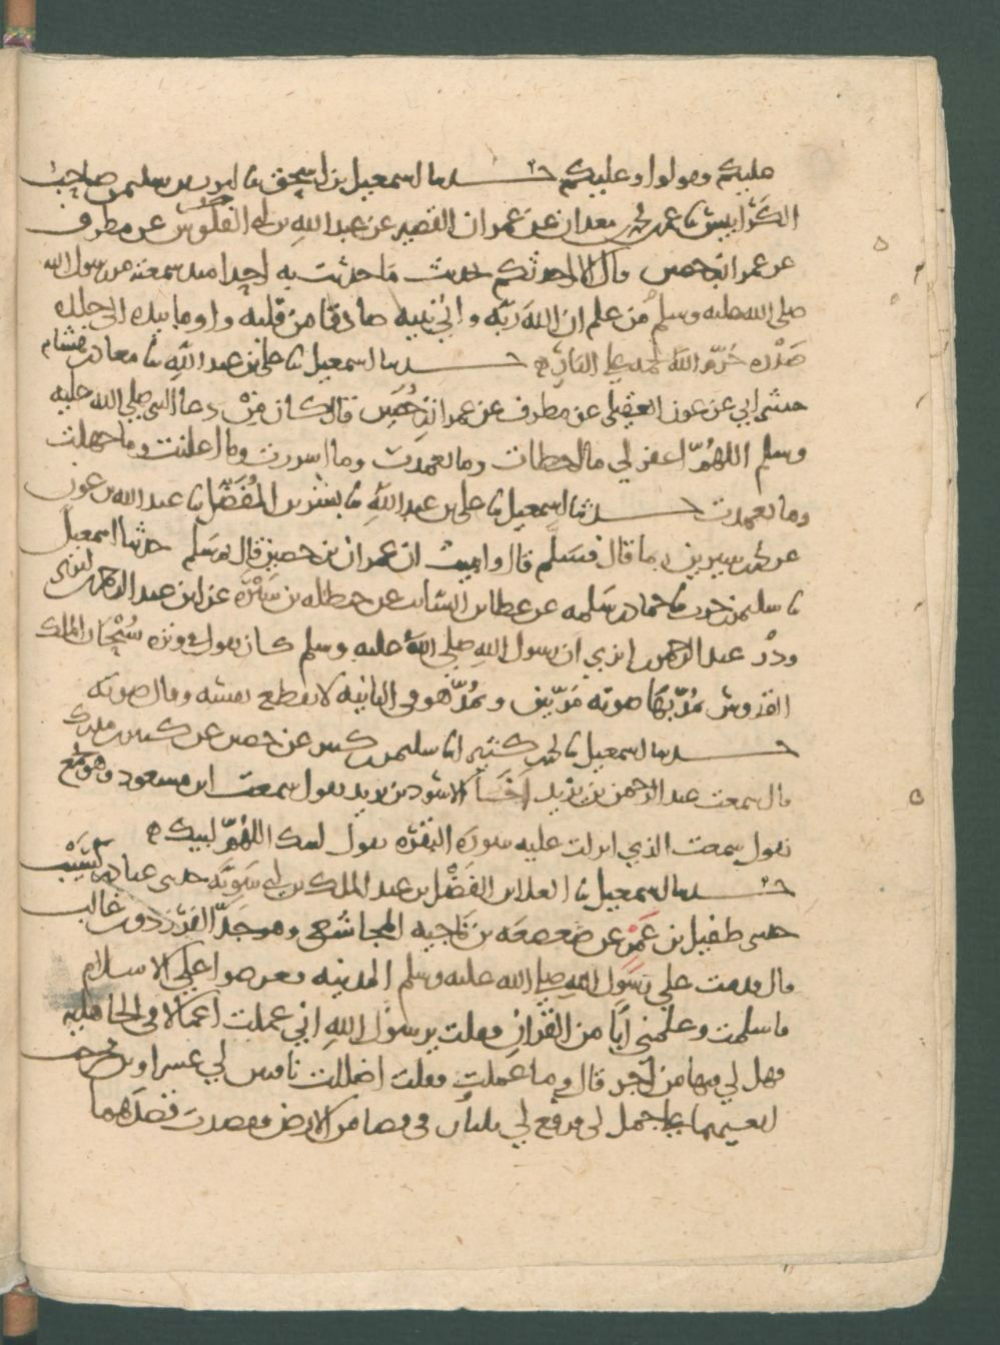 عليكم وقولوا وعليكم حدثنا اسمعيل بن اسحق نا ايوب بن سليمن صاحب
الكرابيس نا عمر بن محمد بن معدان عن عمران القصير عن عبد الله بن ابي القلوص عن مطرف
عن عمران بن حصين قال الا احدثكم حديث ما حدثت به احدا منذ سمعته من رسول الله
صلى الله عليه وسلم من علم ان الله ربه واني نبيه صادقا من قلبه واوما بيده الى جلده
صدره حرم الله لحمه على النار حدثنا اسمعيل نا علي بن عبد الله نا معاذ بن هشام
حدثني ابي عن عون العقيلي عن مطرف عن عمران بن حصين قال كان من دعا النبي صلى الله عليه
وسلم اللهم اغفر لي ما اخطات وما تعمدت وما اسررت وما اعلنت وما جهلت
وما تعمدت حدثنا اسمعيل نا علي بن عبد الله نا بشر بن المفضل نا عبد الله بن عون
عن محمد بن سيرين ربما قال فسلم قال وانبيت ان عمران بن حصين قال ثم سلم حدثنا اسمعيل
نا سليمن بن حرب نا حماد بن سلمه عن عطا بن السايب عن حنظله بن سبرة عن ابن عبد الرحمن بن ابزى
عبد الرحمن بن ابزي ان رسول الله صلى الله عليه وسلم كان يقول في وتره سبحان الملك
القدوس يمد بها صوته مرتين ويمد هو في الثانيه لا يقطع نفسه وقال صوته
حدثنا اسمعيل نا محمد بن كثير انا سليمن بن كثير عن حصين عن كثير بن مدرك
قال سمعت عبد الرحمن بن يزيد اخا الاسود بن يزيد يقول سمعت ابن مسعود وهو بجمع
يقول سمعت الذي انزلت عليه سورة البقرة يقول لبيك اللهم لبيك
حدثنا اسمعيل نا العلا بن الفضل بن عبد الملك بن ابي سوية حدثني عباد بن كسيب
حدثني طفيل بن عمرو عن صعصعه بن ناجيه المجاشعي وهو جد الفرزدق بن غالب
قال قدمت على رسول الله صلى الله عليه وسلم المدينه فعرض علي الاسلام
فاسلمت وعلمني ايا من القران فقلت يرسول الله اني عملت اعمالا في الجاهليه
فهل لي فيها من اجر قال وما عملت فقلت اضللت ناقتين لي عشراوين فخرجت
ابغيهما على جمل لي فرفع لي بيتان في فضا من الارض فقصدت قصدهما